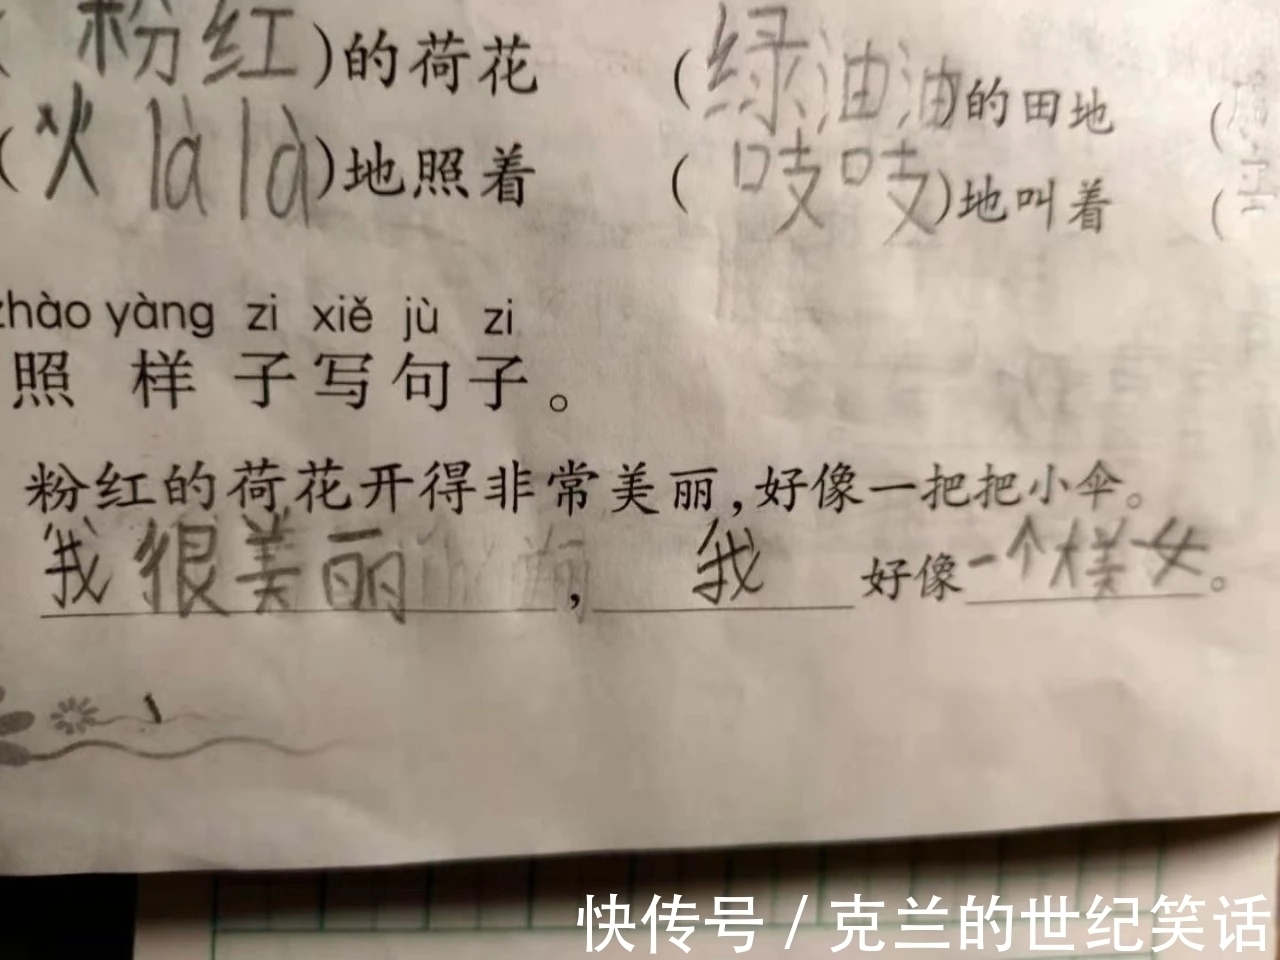 (粉红)的荷花 (绿油油)的田地 (
(火làlà)地照着 (吱吱)地叫着 (
zhào yàng zi xiě jù zi
照样子写句子。
粉红的荷花开得非常美丽,好像一把把小伞。
我很美丽,我好像一个大美女。
快传号/克兰的世纪笑话